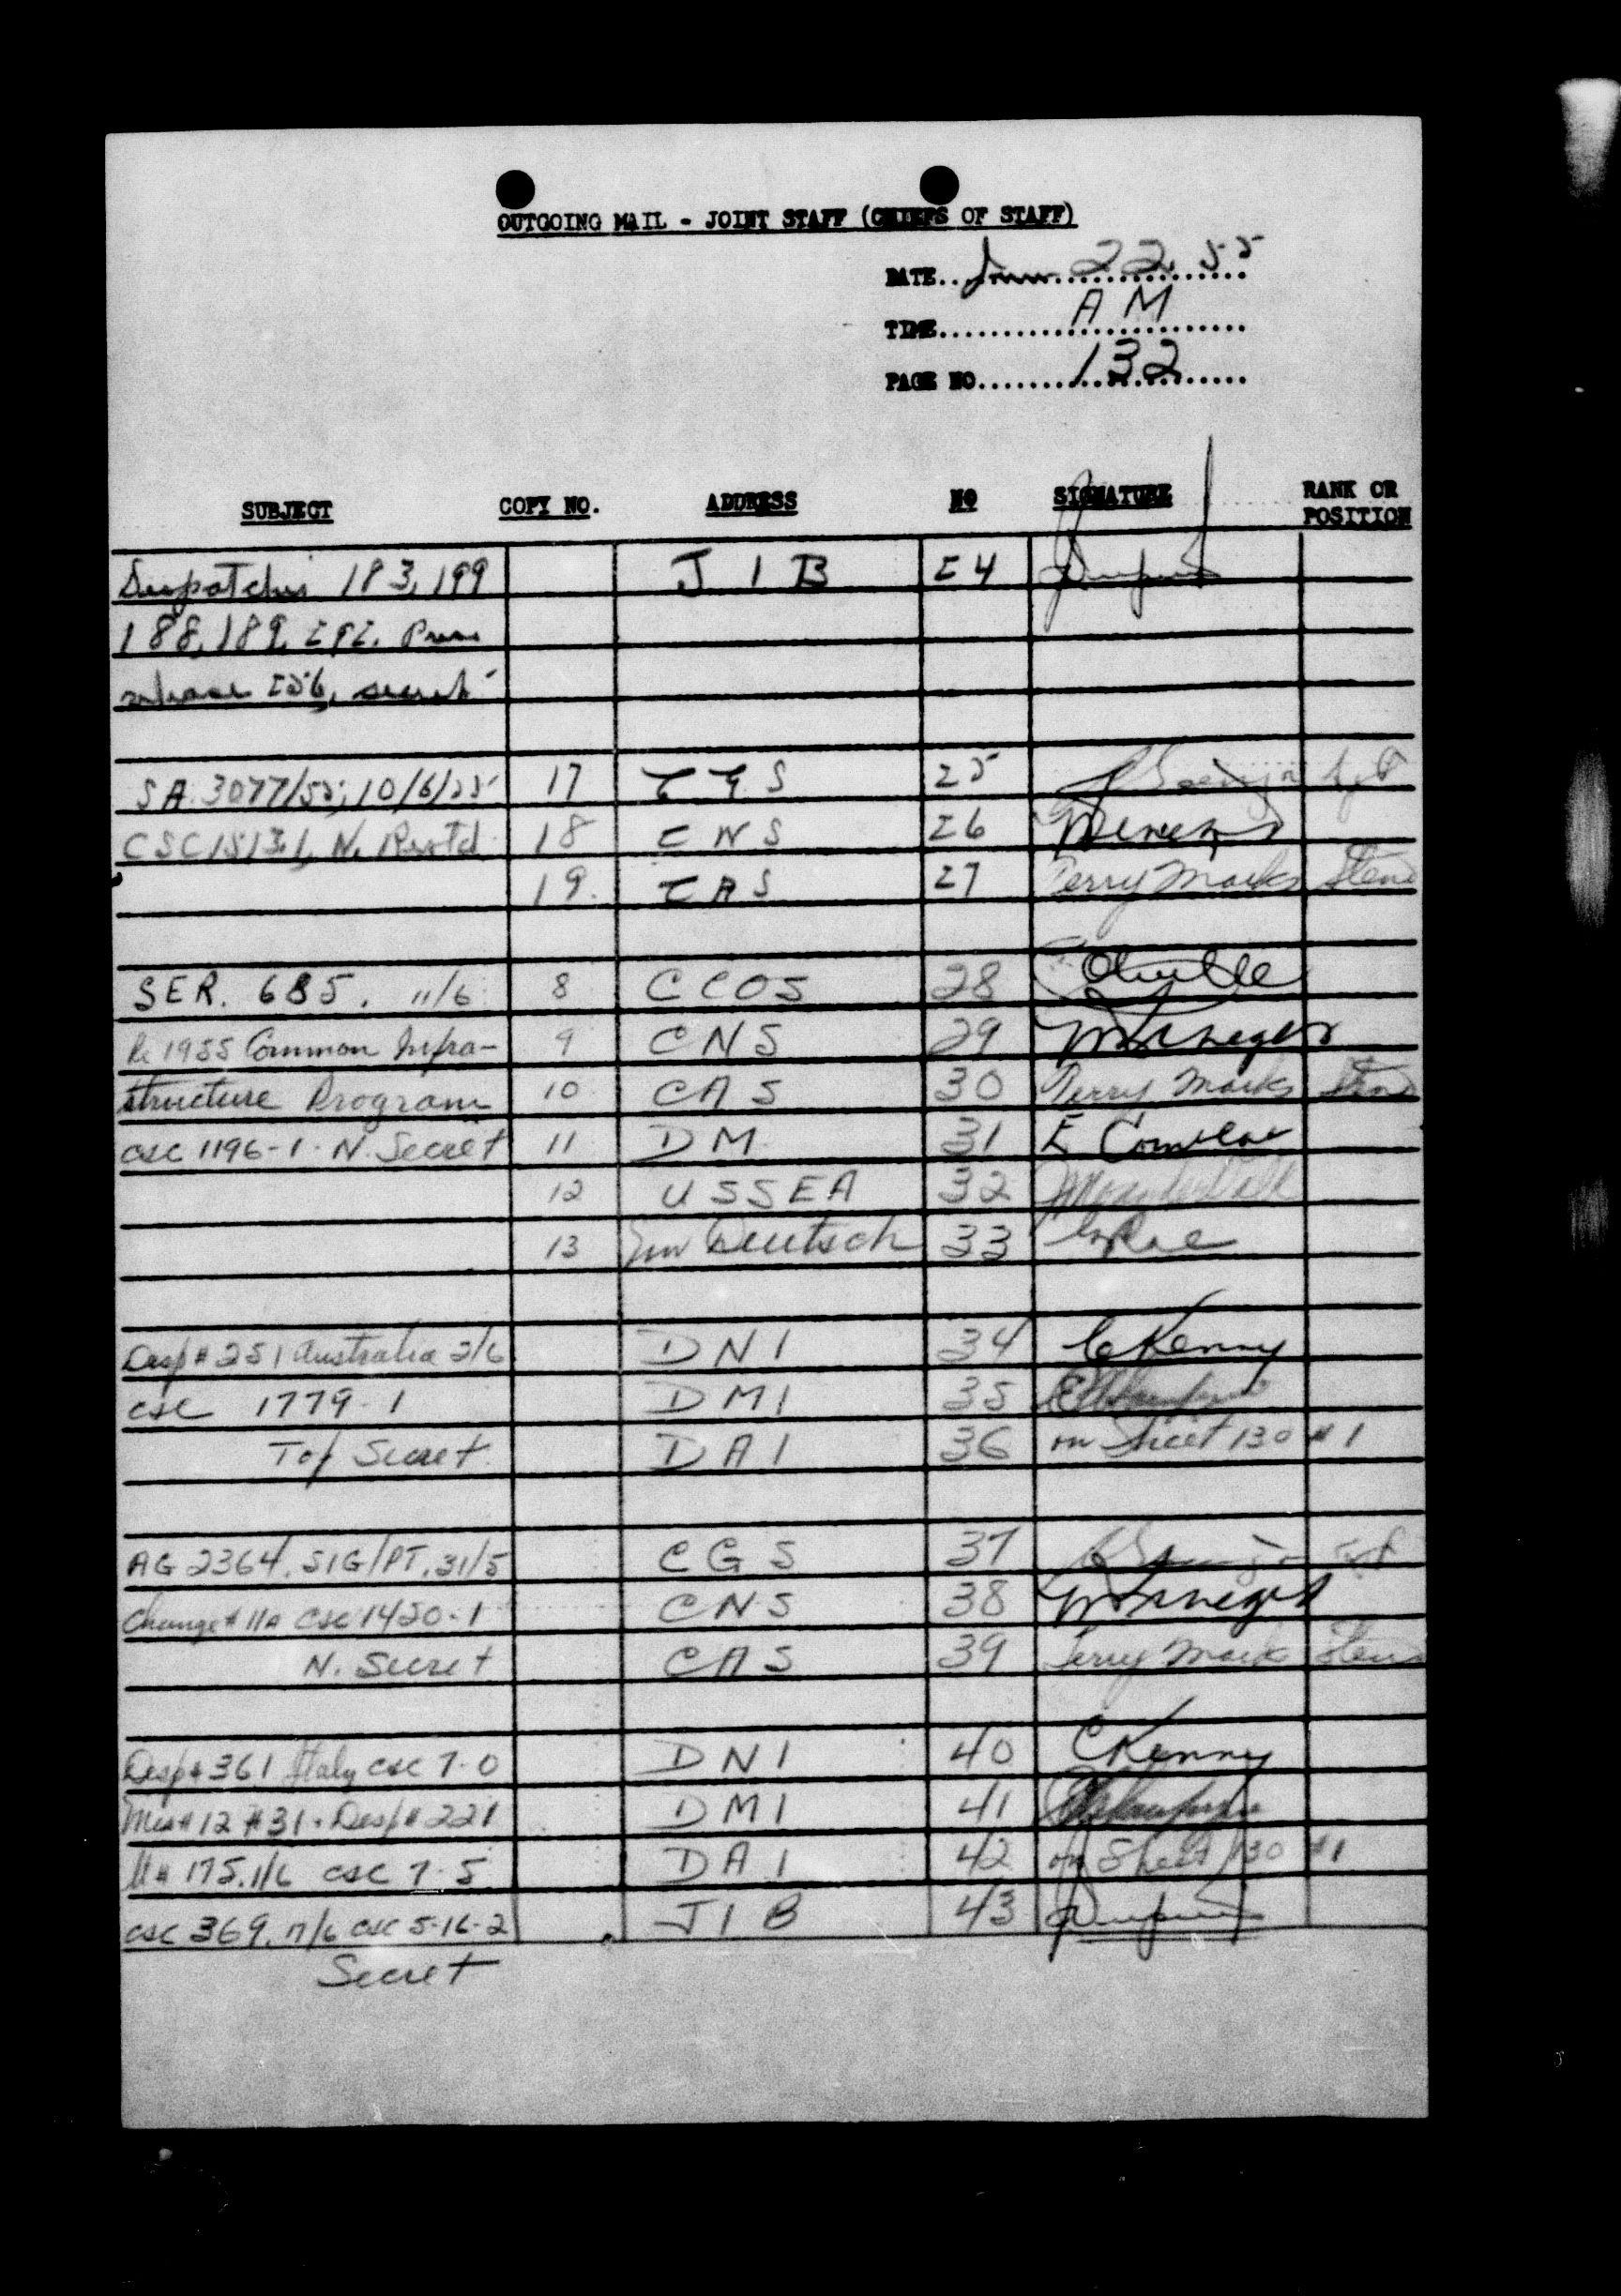 OUTGOING MAIL - JOINT STAFF (CHIEFS OF STAFF)
DATE... 22, 55
TIME... A M
PAGE NO... 132
SUBJECT COPY NO. ADDRESS NO SIGNATURE RANK OR POSITION
Despatches 183, 199 J I B 24
188, 189, 292. Press
release 256, secret
SA 3077/55, 10/6/55 17 C G S 25
CSC 1513.1, N. Restd 18 C N S 26
19. C A S 27 Terry Marks Steno
SER. 685. 11/6 8 C C O S 28
Re 1955 Common Infra- 9 C N S 29
structure Program 10 C A S 30 Terry Marks Steno
csc 1196-1. N. Secret 11 D M 31 E
12 U S S E A 32
13 Deutsch 33
Desp # 251 Australia 2/6 D N I 34 C Kenny
csc 1779-1 D M I 35
Top Secret D A I 36 on Sheet 130 # 1
AG 2364. SIG/PT. 31/5 C G S 37
Change # 11A csc 1420-1 C N S 38
N. Secret C A S 39 Terry Mark Steno
Desp # 361 Italy csc 7-0 D N I 40 C Kenny
12 # 31. Desp # 221 D M I 41
175. 1/6 csc 7-5 D A I 42 on Sheet 130 #1
csc 369. 17/6 csc 5-16-2 J I B 43
Secret